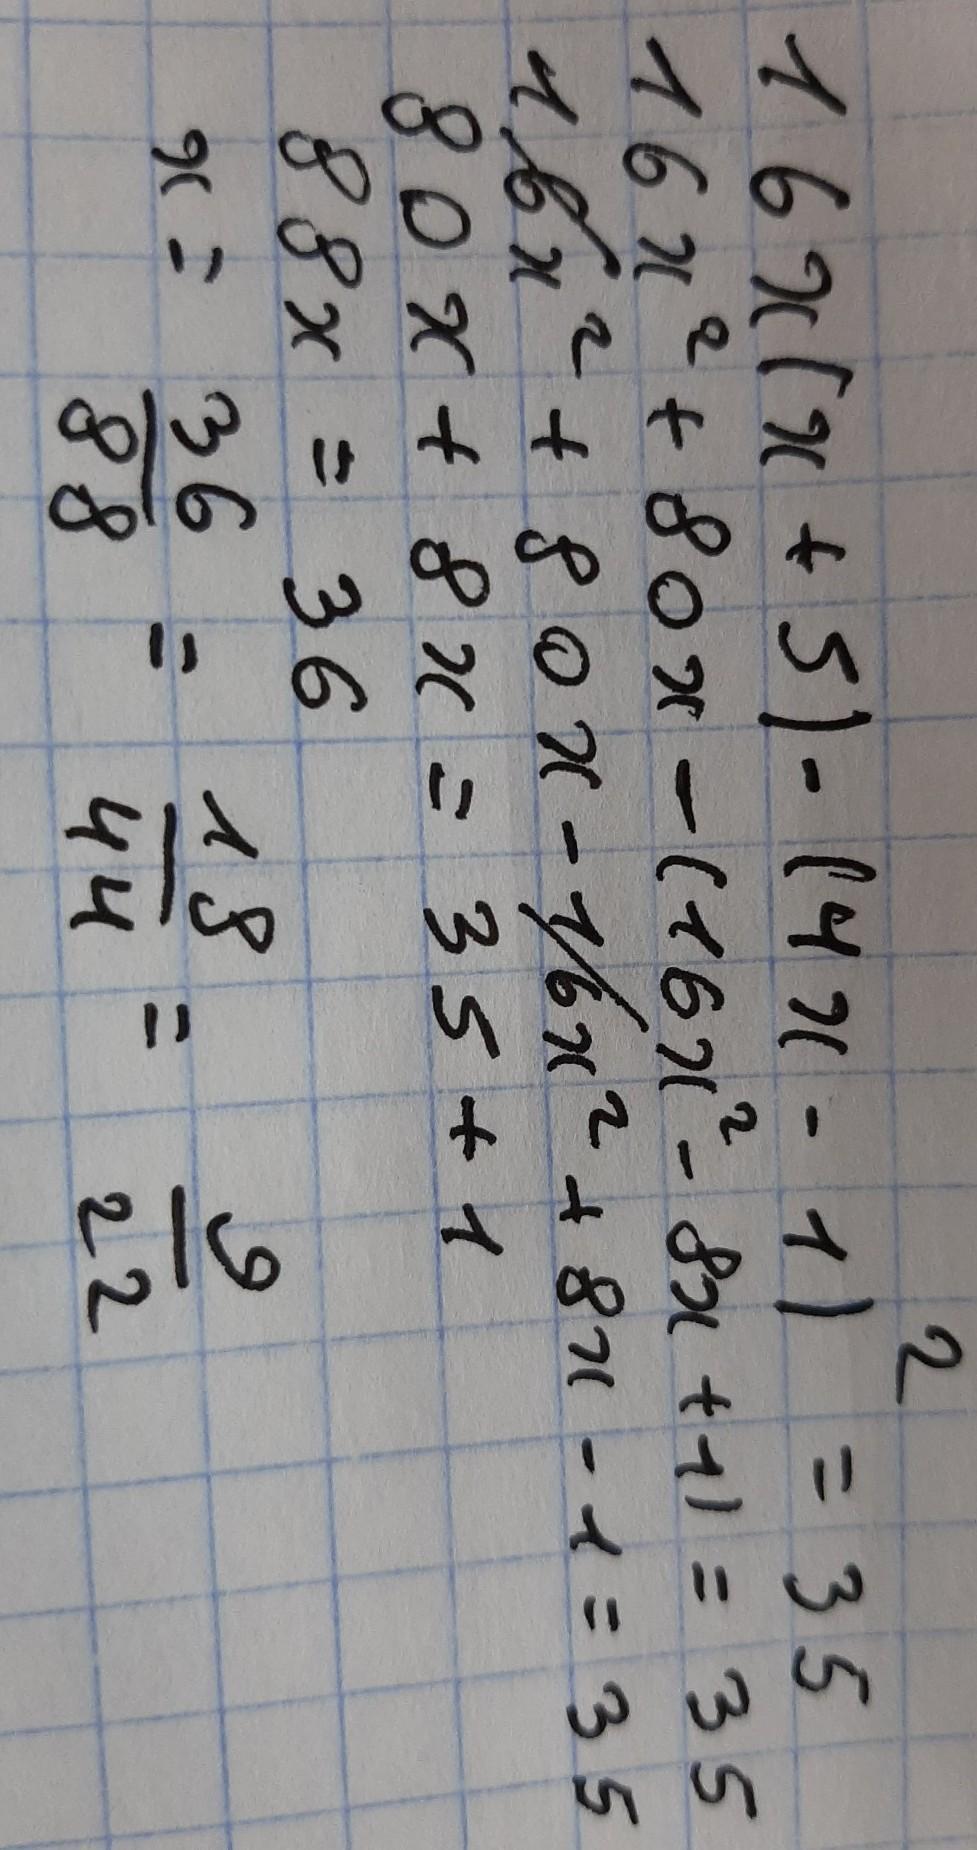 16x(x+5)-(4x-1)² = 35
16x²+80x-(16x²-8x+1)=35
16x²+80x-16x²+8x-1=35
80x+8x=35+1
88x=36
x= 36/88 = 18/44 = 9/22